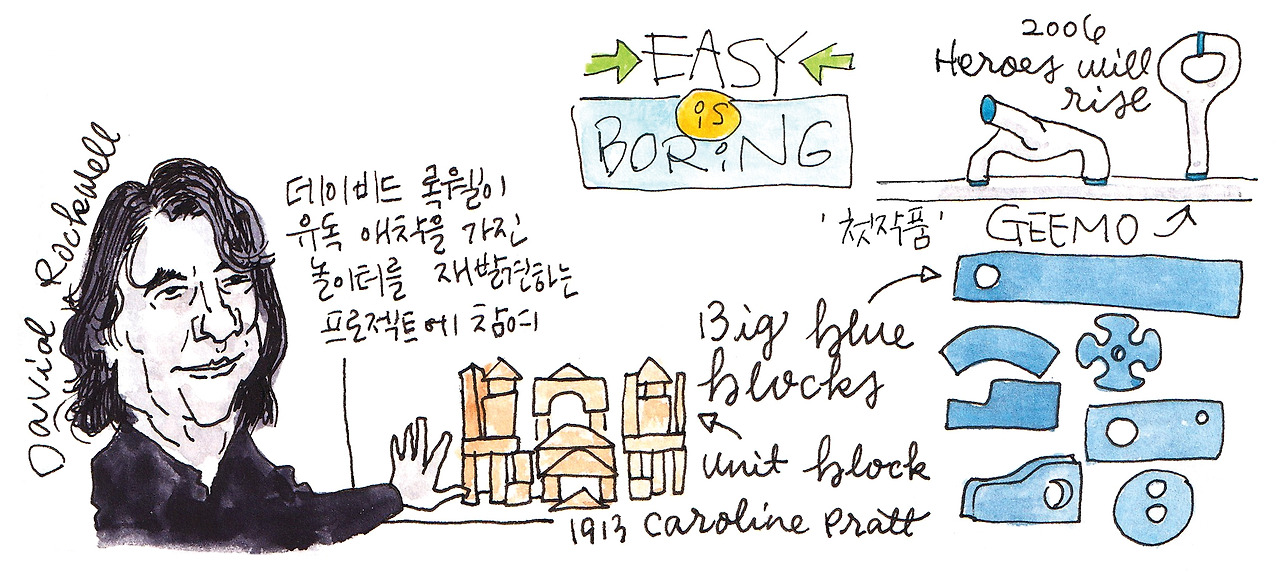 David Rockwell
데이비드 록웰이
유독 애착을 가진
놀이터를 재발견하는
프로젝트에 참여
EASY
is
BORiNG
2006
Heroes will
rise
'첫작품'
GEEMO
Big blue
blocks
unit block
1913 Caroline Pratt